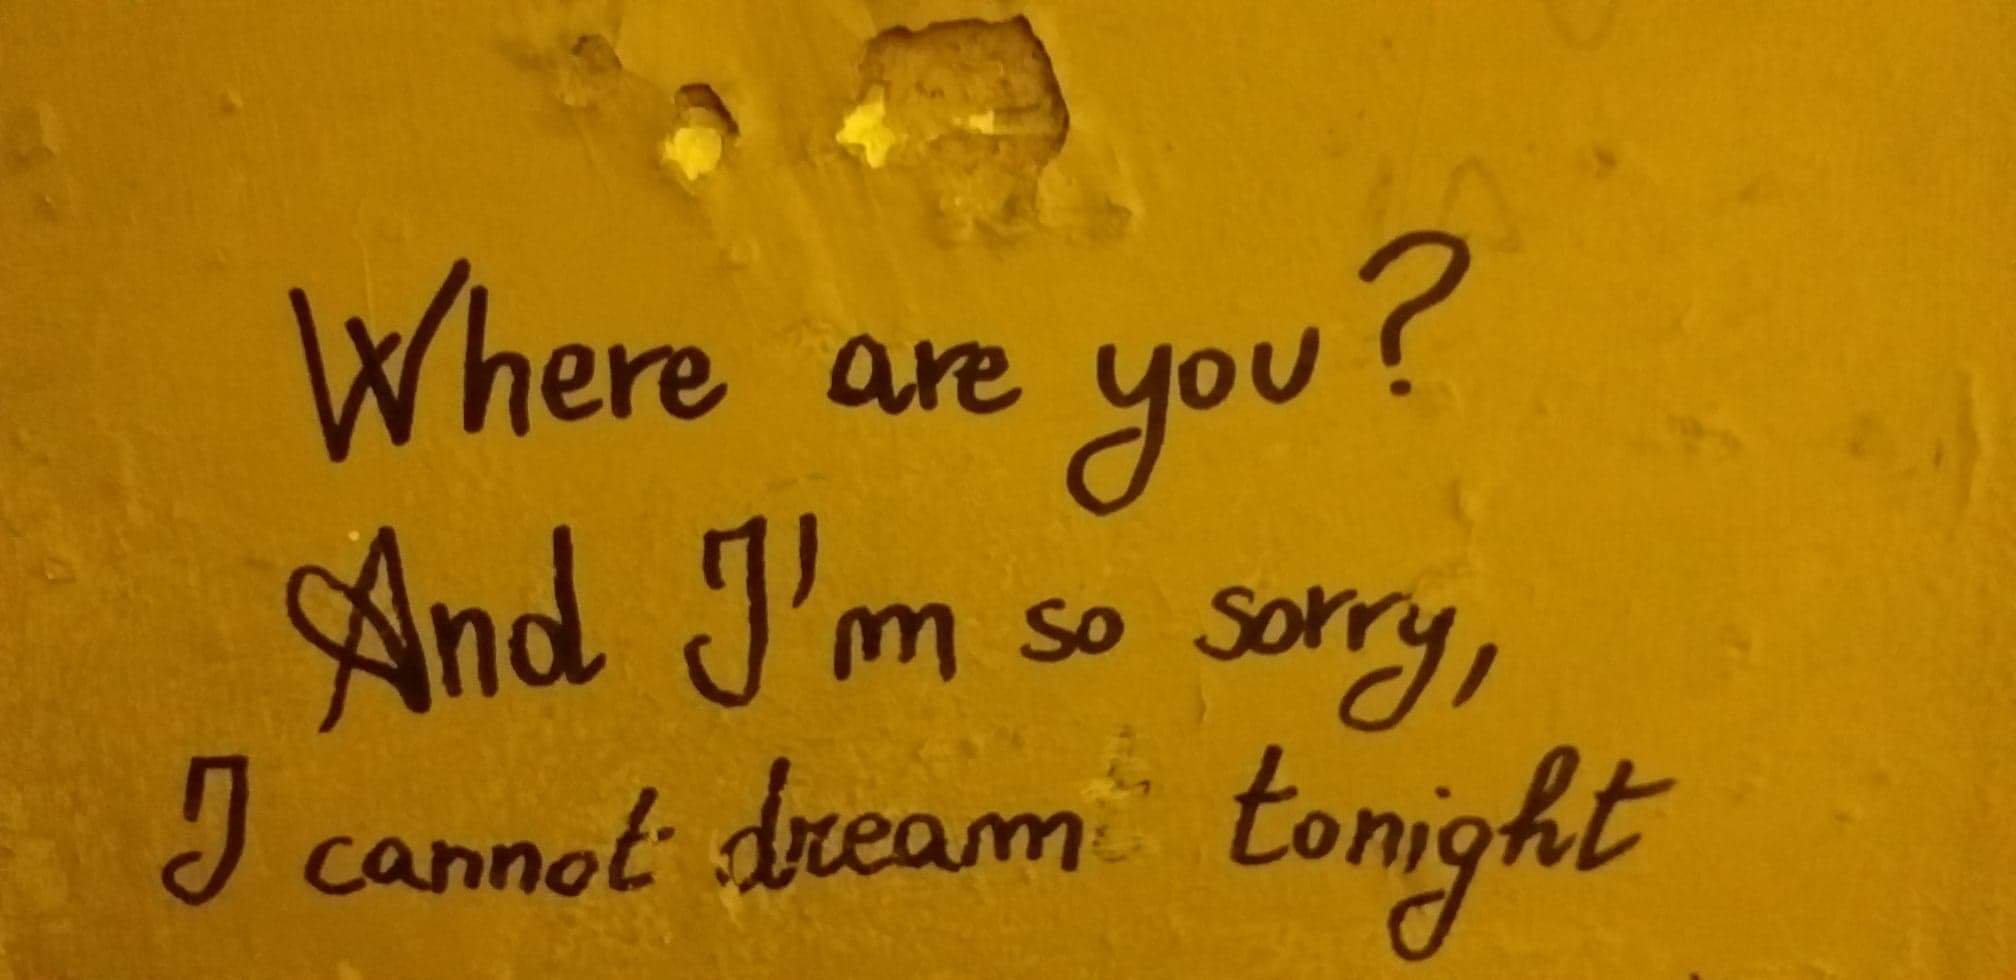 Where are you?
And I'm so sorry,
I cannot dream tonight